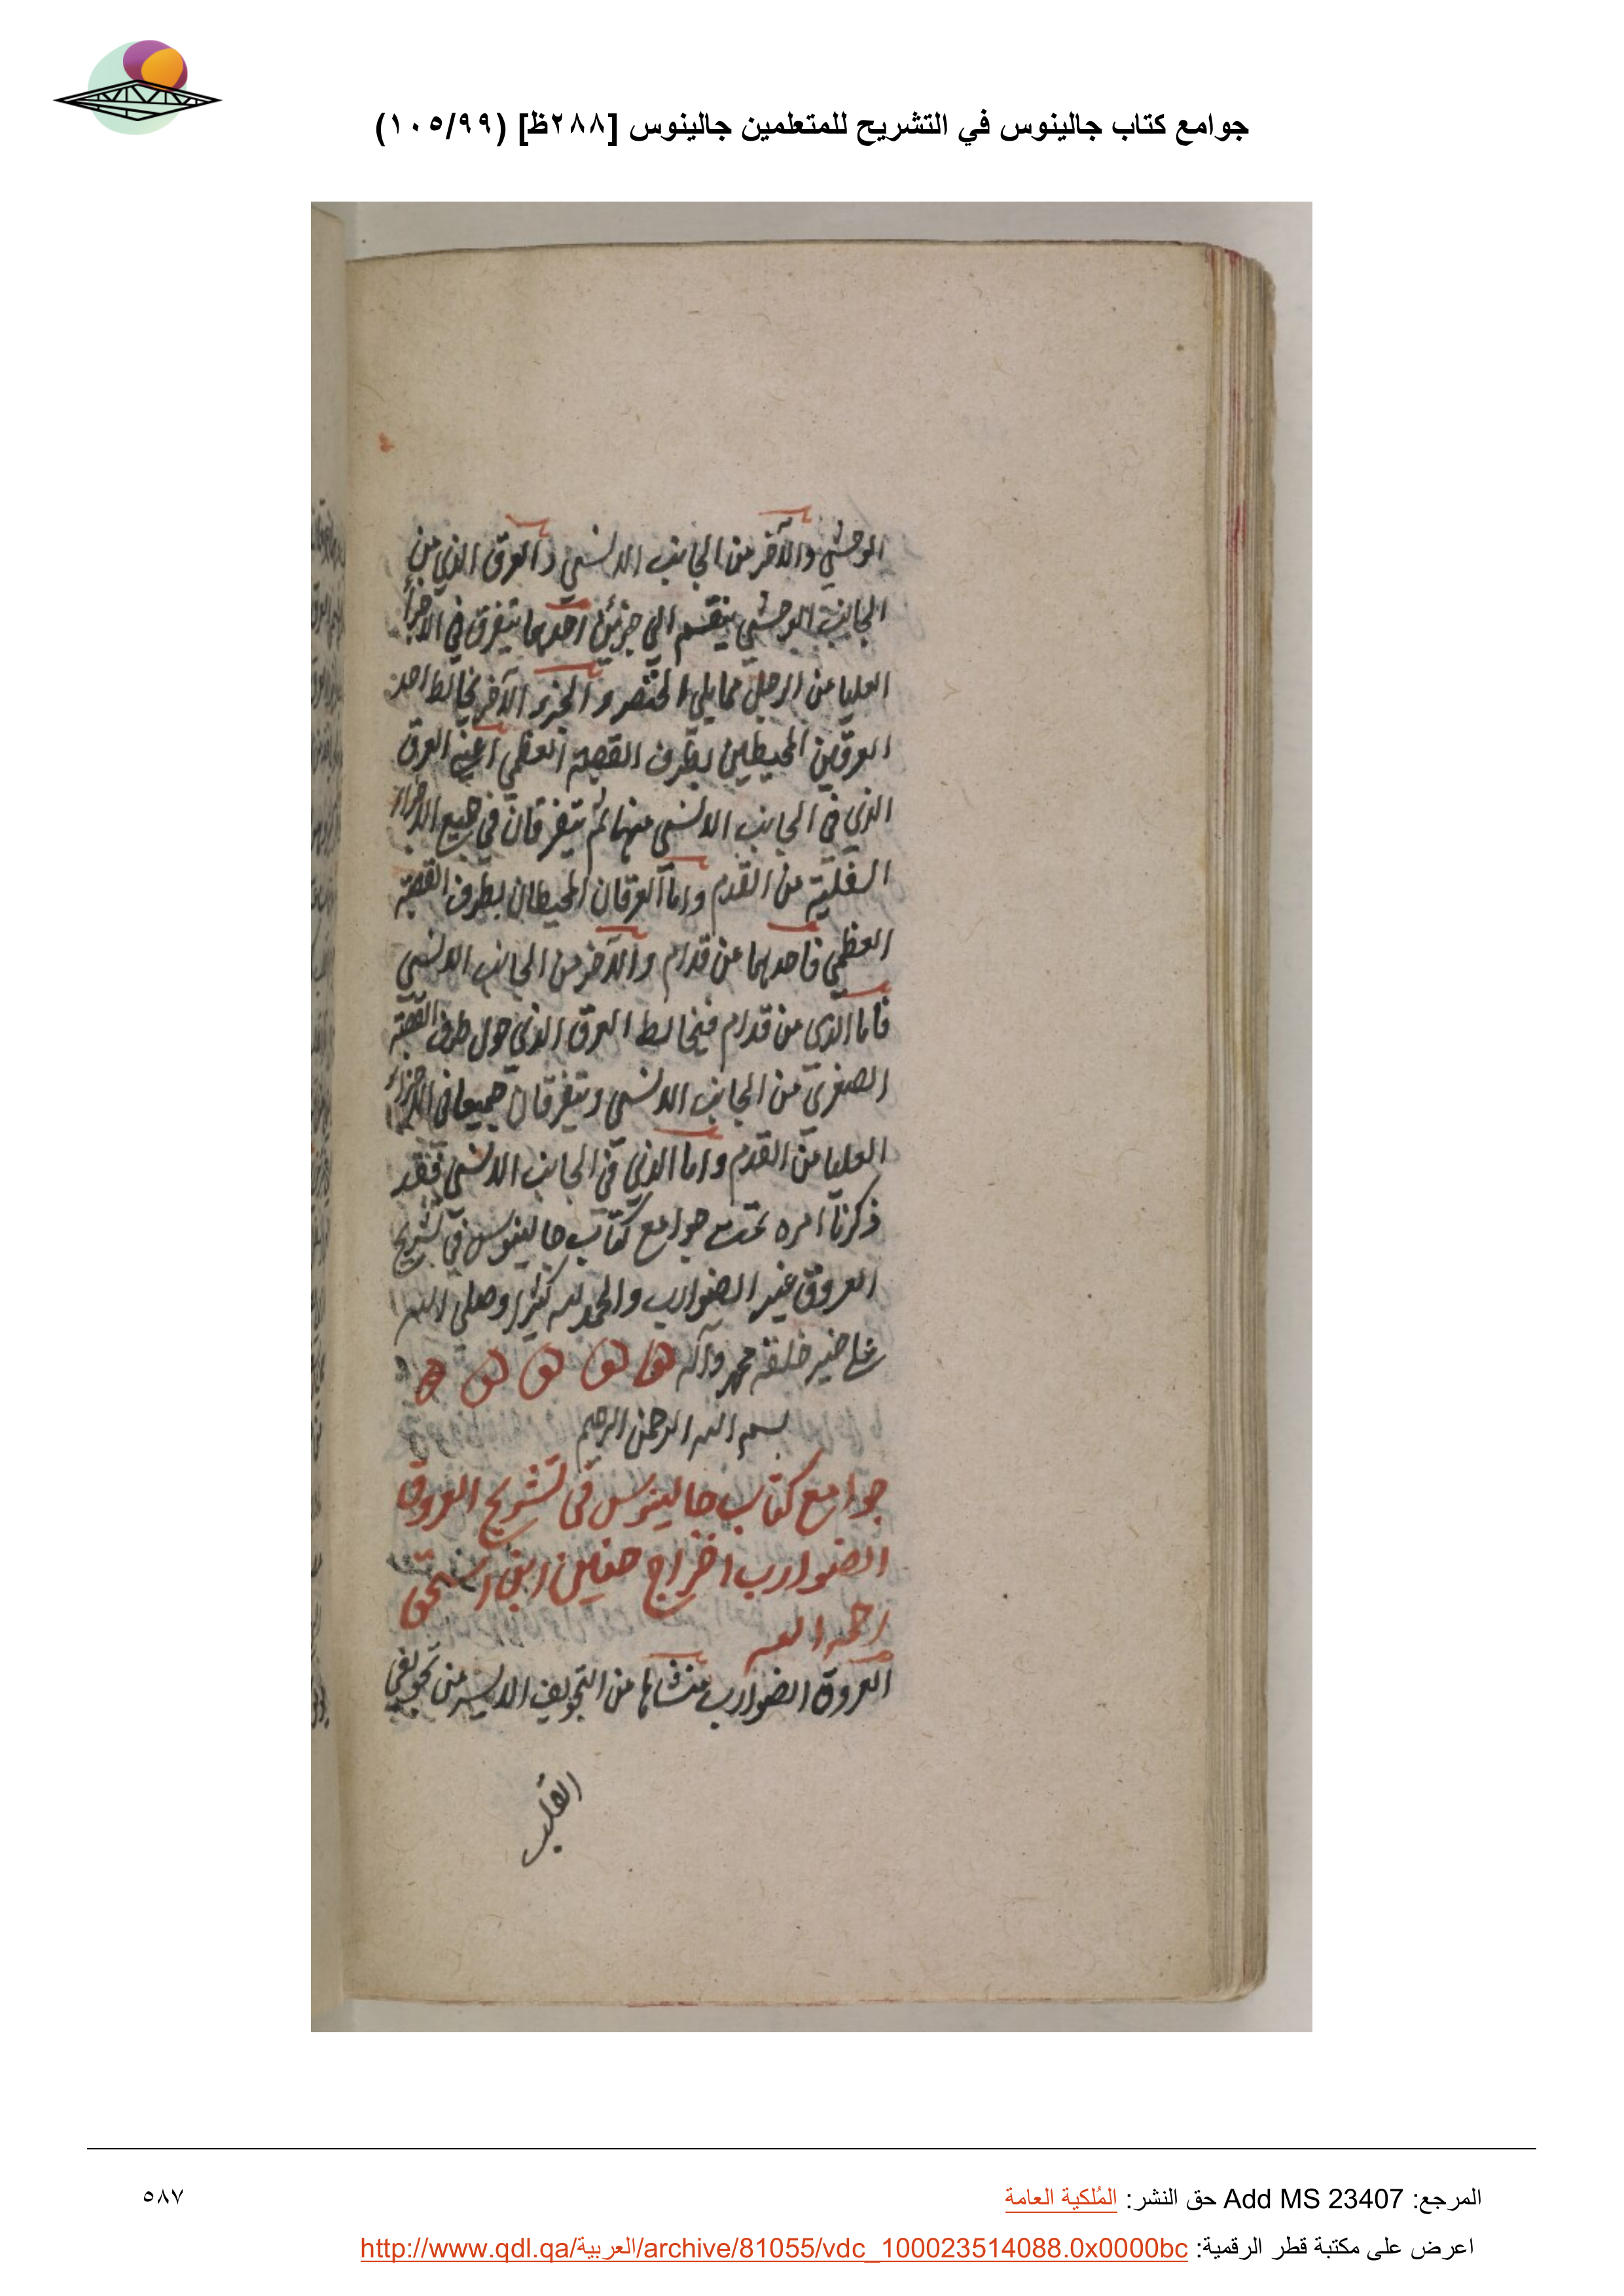 جوامع كتاب جالينوس في التشريح للمتعلمين جالينوس [٢٨٨ظ] (١٠٥/٩٩)
الوحشي والآخر من الجانب الانسي والعرق الذي من
الجانب الوحشي ينقسم الي جزئين احدهما يتفرق في الاجزأ
العليا من الرجل مما يلي الخنصر والجزء الآخر يخالط احد
العرقين المحيطين بطرف القصبة العظمي اعني العرق
الذي في الجانب الانسي منهما ثم يتفرقان في جميع الاجزاء
السفلية من القدم واما العرقان المحيطان بطرف القصبة
العظمي فاحدهما من قدام والآخر من الجانب الانسي
فاما الذي من قدام فيخالط العرق الذي حول طرف القصبة
الصغري من الجانب الانسي ويتفرقان جميعا في الاجزاء
العليا من القدم واما الذي في الجانب الانسي فقد
ذكرنا امره تمت جوامع كتاب جالينوس في تشريح
العروق غير الضوارب والحمد لله كثيرا وصلي الله
علي خير خلقه محمد وآله
بسم الله الرحمن الرحيم
جوامع كتاب جالينوس في تشريح العروق
الضوارب اخراج حنين ابن اسحق
رحمه الله
العروق الضوارب منشاها من التجويف الايسر من تجويفي
القلب
المرجع: Add MS 23407 حق النشر: المُلكية العامة
٥٨٧
اعرض على مكتبة قطر الرقمية: http://www.qdl.qa/العربية/archive/81055/vdc_100023514088.0x0000bc